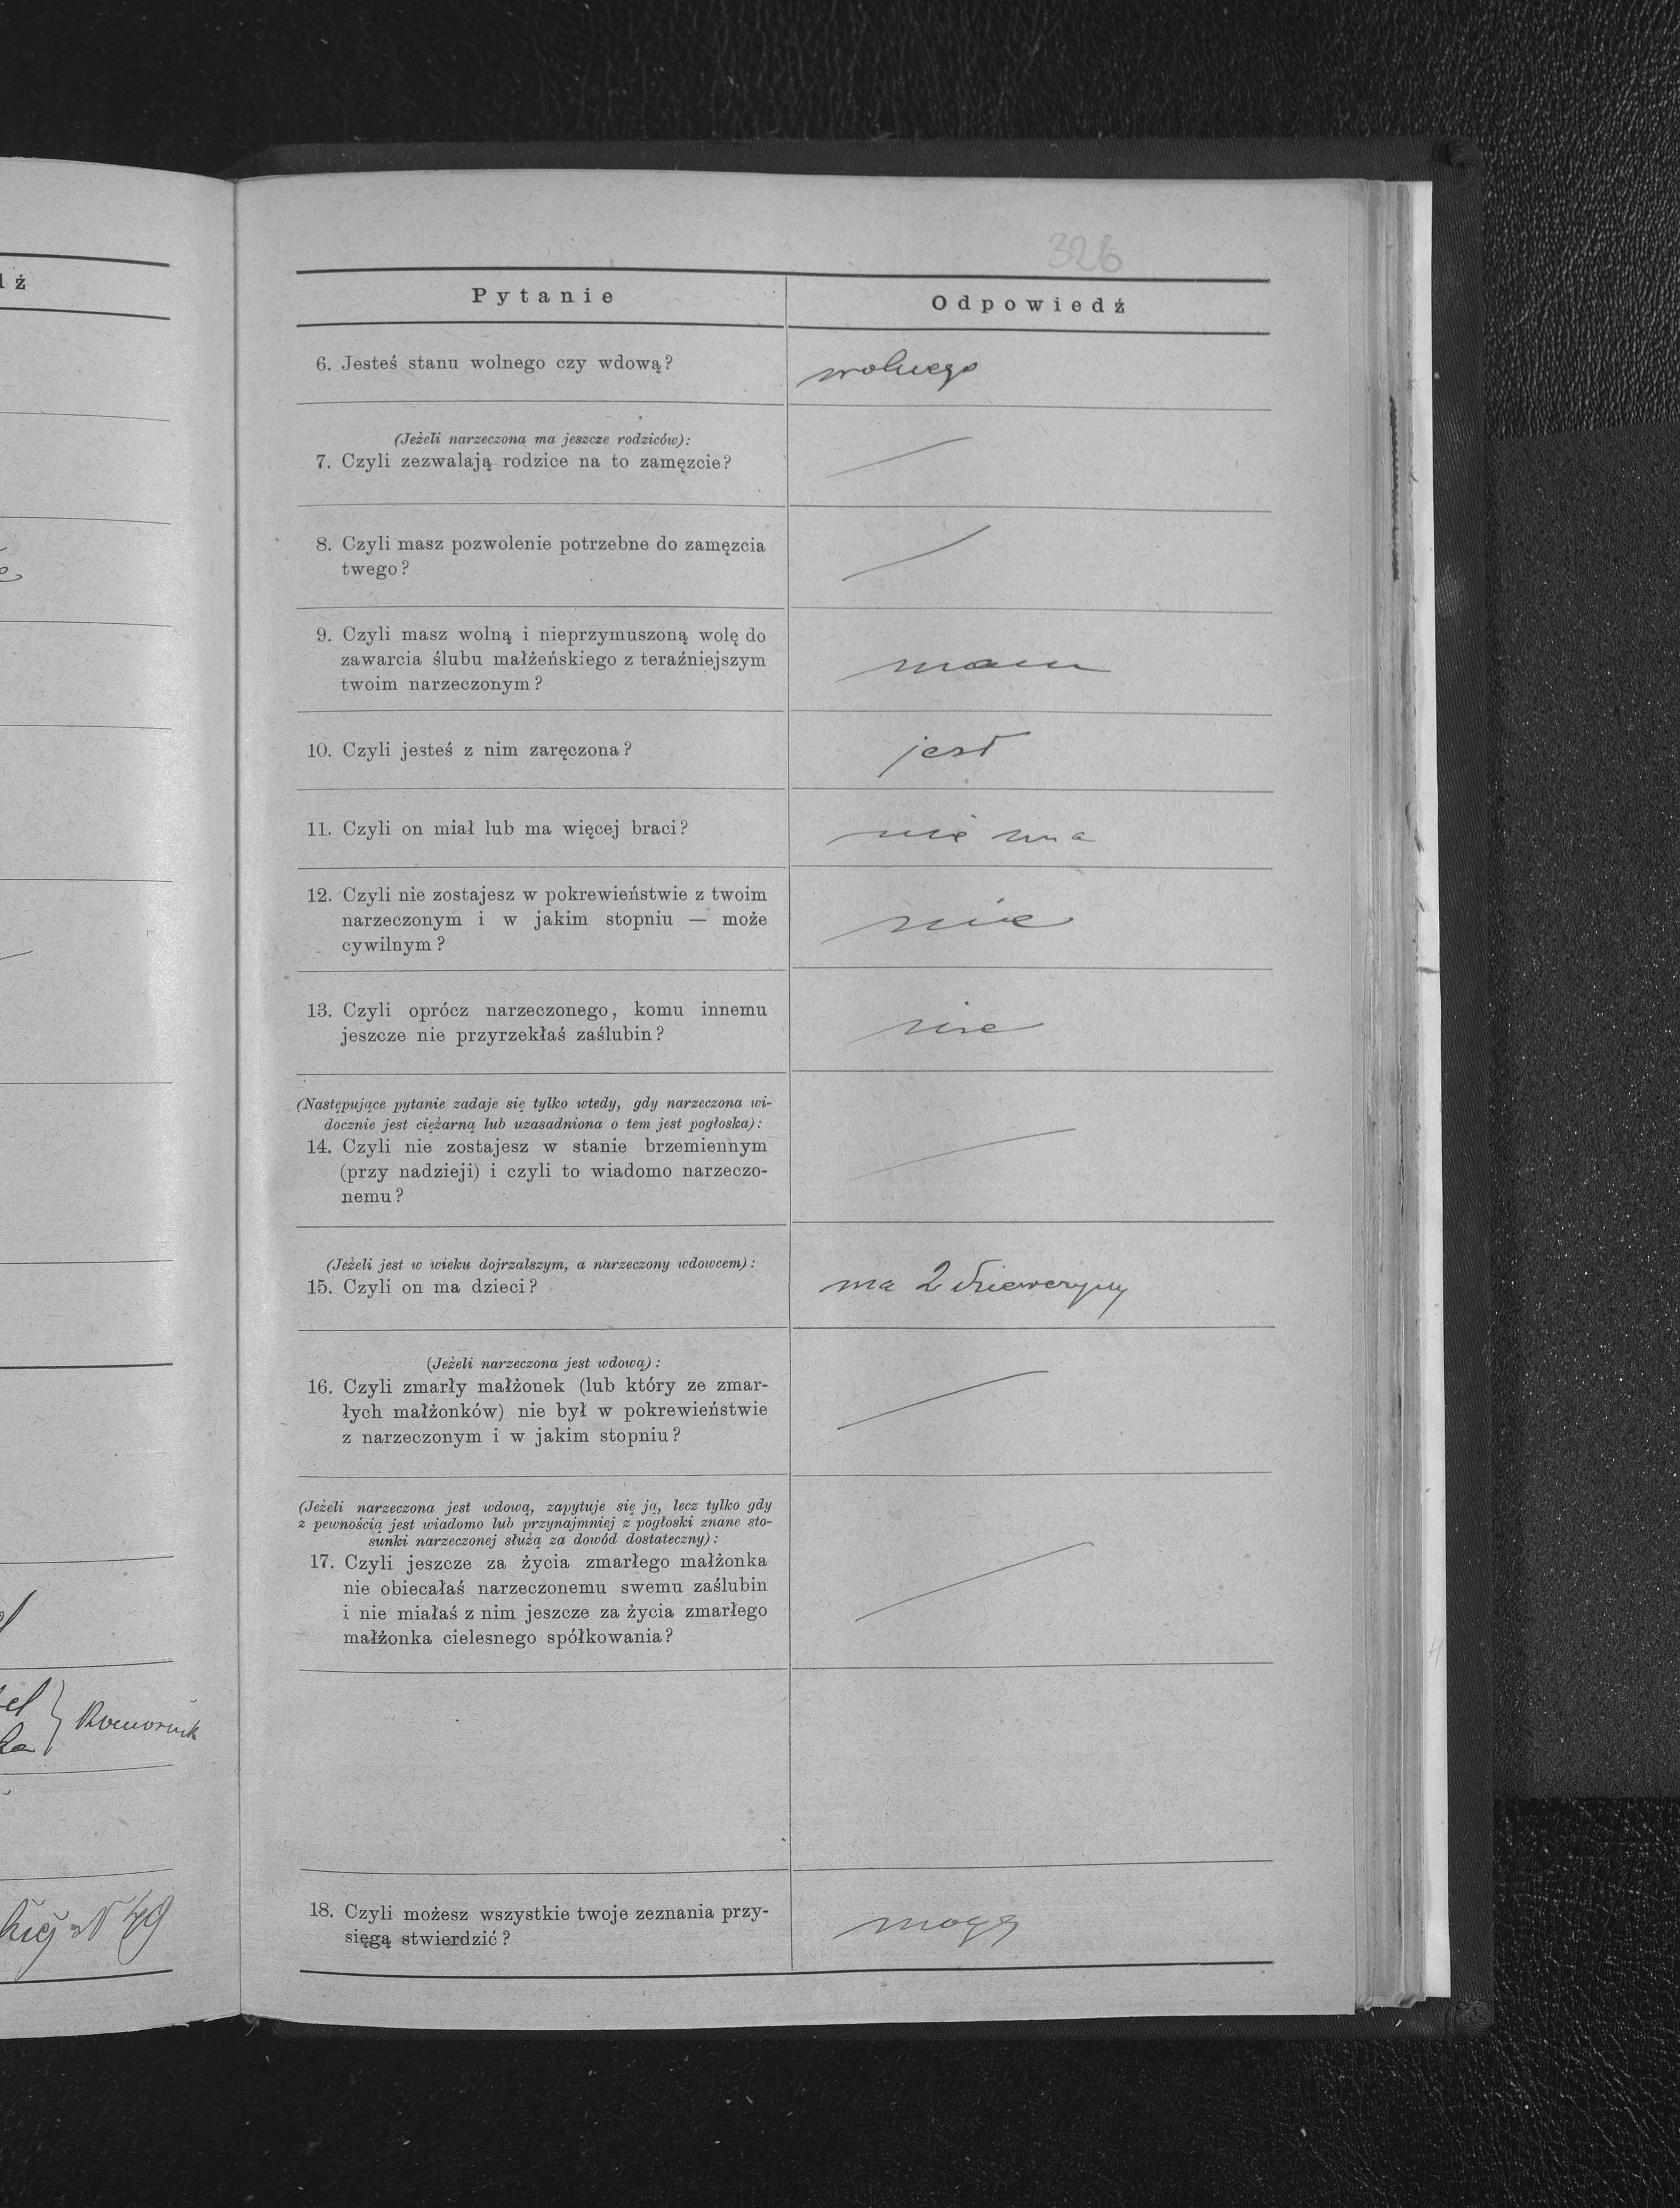 326
Pytanie
Odpowiedź
6. Jesteś stanu wolnego czy wdową?
wolnego
(Jeżeli narzeczona ma jeszcze rodziców):
7. Czyli zezwalają rodzice na to zamęzcie?
8. Czyli masz pozwolenie potrzebne do zamęzcia
twego?
9. Czyli masz wolną i nieprzymuszoną wolę do
zawarcia ślubu małżeńskiego z teraźniejszym
twoim narzeczonym?
mam
10. Czyli jesteś z nim zaręczona?
jest
11. Czyli on miał lub ma więcej braci?
nie ma
12. Czyli nie zostajesz w pokrewieństwie z twoim
narzeczonym i w jakim stopniu — może
cywilnym?
nie
13. Czyli oprócz narzeczonego, komu innemu
jeszcze nie przyrzekłaś zaślubin?
nie
(Następujące pytanie zadaje się tylko wtedy, gdy narzeczona wi-
docznie jest ciężarną lub uzasadniona o tem jest pogłoska):
14. Czyli nie zostajesz w stanie brzemiennym
(przy nadzieji) i czyli to wiadomo narzeczo-
nemu?
(Jeżeli jest w wieku dojrzalszym, a narzeczony wdowcem):
15. Czyli on ma dzieci?
ma 2 dziewczyny
(Jeżeli narzeczona jest wdową):
16. Czyli zmarły małżonek (lub który ze zmar-
łych małżonków) nie był w pokrewieństwie
z narzeczonym i w jakim stopniu?
(Jeżeli narzeczona jest wdową, zapytuje się ją, lecz tylko gdy
z pewnością jest wiadomo lub przynajmniej z pogłoski znane sto-
sunki narzeczonej służą za dowód dostateczny):
17. Czyli jeszcze za życia zmarłego małżonka
nie obiecałaś narzeczonemu swemu zaślubin
i nie miałaś z nim jeszcze za życia zmarłego
małżonka cielesnego spółkowania?
18. Czyli możesz wszystkie twoje zeznania przy-
sięgą stwierdzić?
mogę